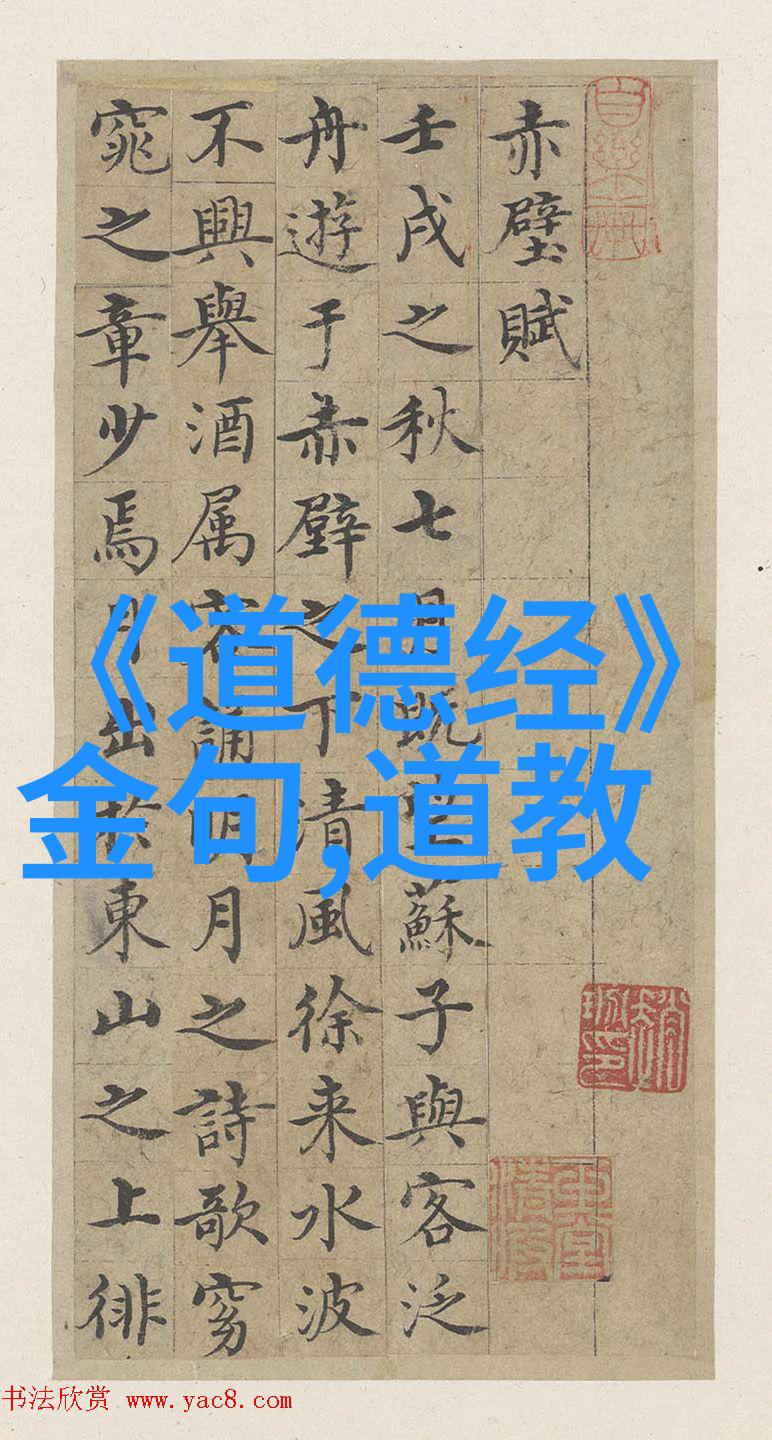 赤壁賦
壬戌之秋七月既望蘇子與客泛
舟遊于赤壁之下清風徐来水波
不興舉酒属客誦明月之詩歌窈
窕之章少焉月出於東山之上徘
《道德经》
金句,道教
书法欣赏 www.yac8.com